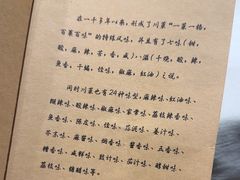 在一千多年以来，形成了川菜“一菜一格，
百菜百味”的特殊风味，并且有了七味(甜，
酸，麻，辣，苦，香，咸)、八滋(干烧，酸，辣，
鱼香，干煸，怪味，椒麻，红油)之说。
同时川菜也有24种味型，麻辣味、红油
味、糊辣味、酸辣味、椒麻味、家常味、荔枝辣香味、
鱼香味、陈皮味、怪味、蒜泥味、姜汁味、
芥末味、麻酱味、烟香味、酱香味、五香味、
糟香味、咸鲜味、豉汁味、茄汁味、醇甜味、
荔枝味、糖醋味等。